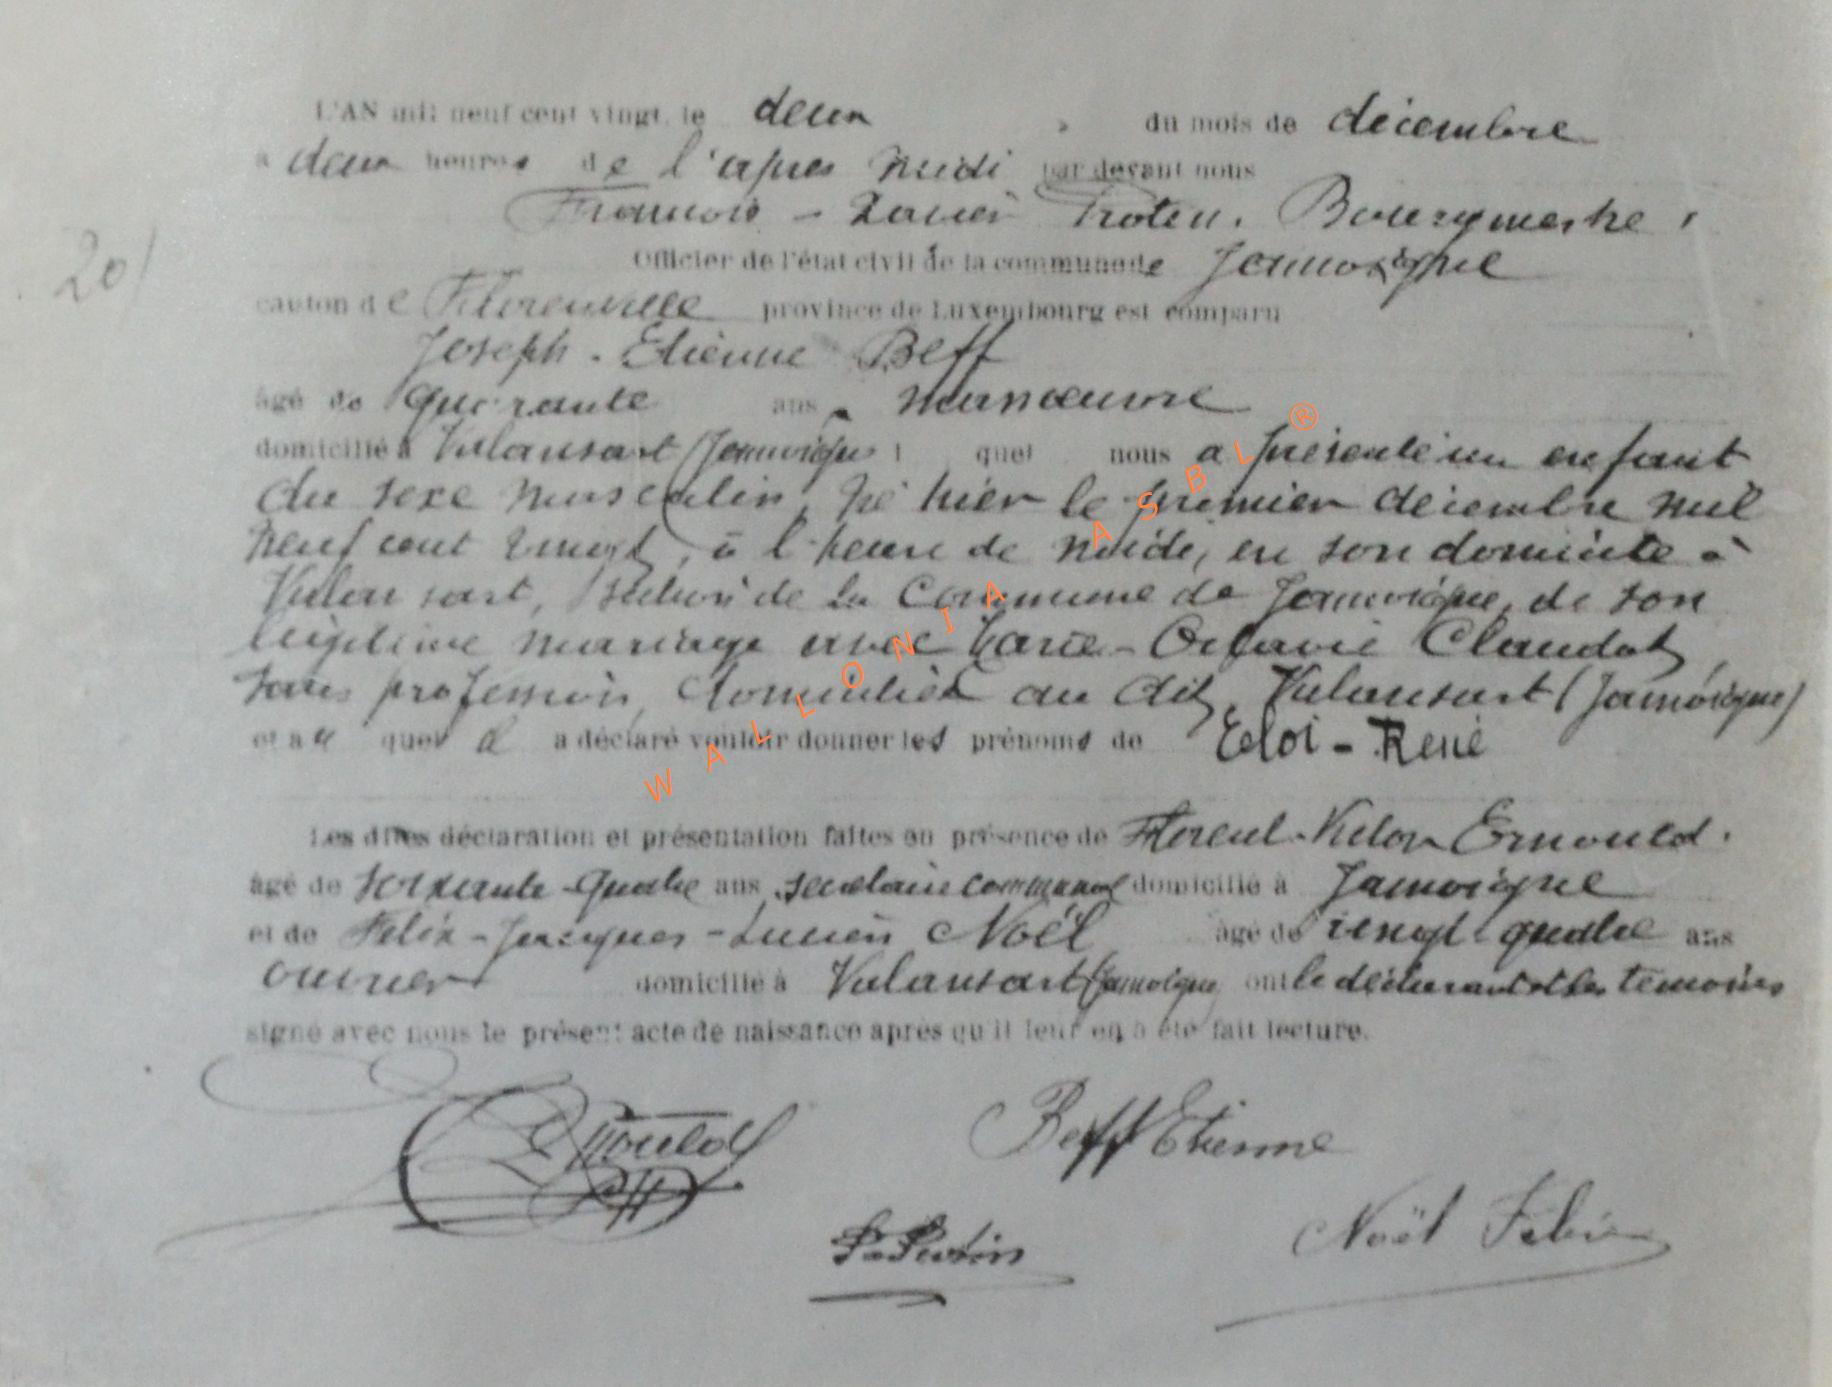 L'AN mil neuf cent vingt, le deux du mois de décembre
à deux heures de l'après midi par devant nous
François - Xavier Bourgmestre,
Officier de l'état civil de la commune de Jamoigne
20/
canton de Florenville province de Luxembourg est comparu
Joseph - Etienne Beff
âgé de quarante ans, manœuvre
domicilié à Valansart (Jamoigne) quel nous a présenté un enfant
du sexe masculin, né hier le premier décembre mil
neuf cent vingt, à l'heure de midi, en son domicile à
Valansart, section de la Commune de Jamoigne, de son
légitime mariage avec Marie - Octavie Claudot,
sans profession, domiciliée au dit Valansart (Jamoigne)
et auquel il a déclaré vouloir donner les prénoms de Eloi - René
Les dites déclaration et présentation faites en présence de Florent - Victor Ernould.
âgé de soixante - quatre ans, secrétaire communal domicilié à Jamoigne
et de Félix - Jacques - Lucien Noël âgé de vingt - quatre ans
ouvrier domicilié à Valansart (Jamoigne) ont le déclarant et les témoins
signé avec nous le présent acte de naissance après qu'il leur en a été fait lecture.
Ernould
Beff Etienne
Noël Félix
WALLONIA ASBL ®